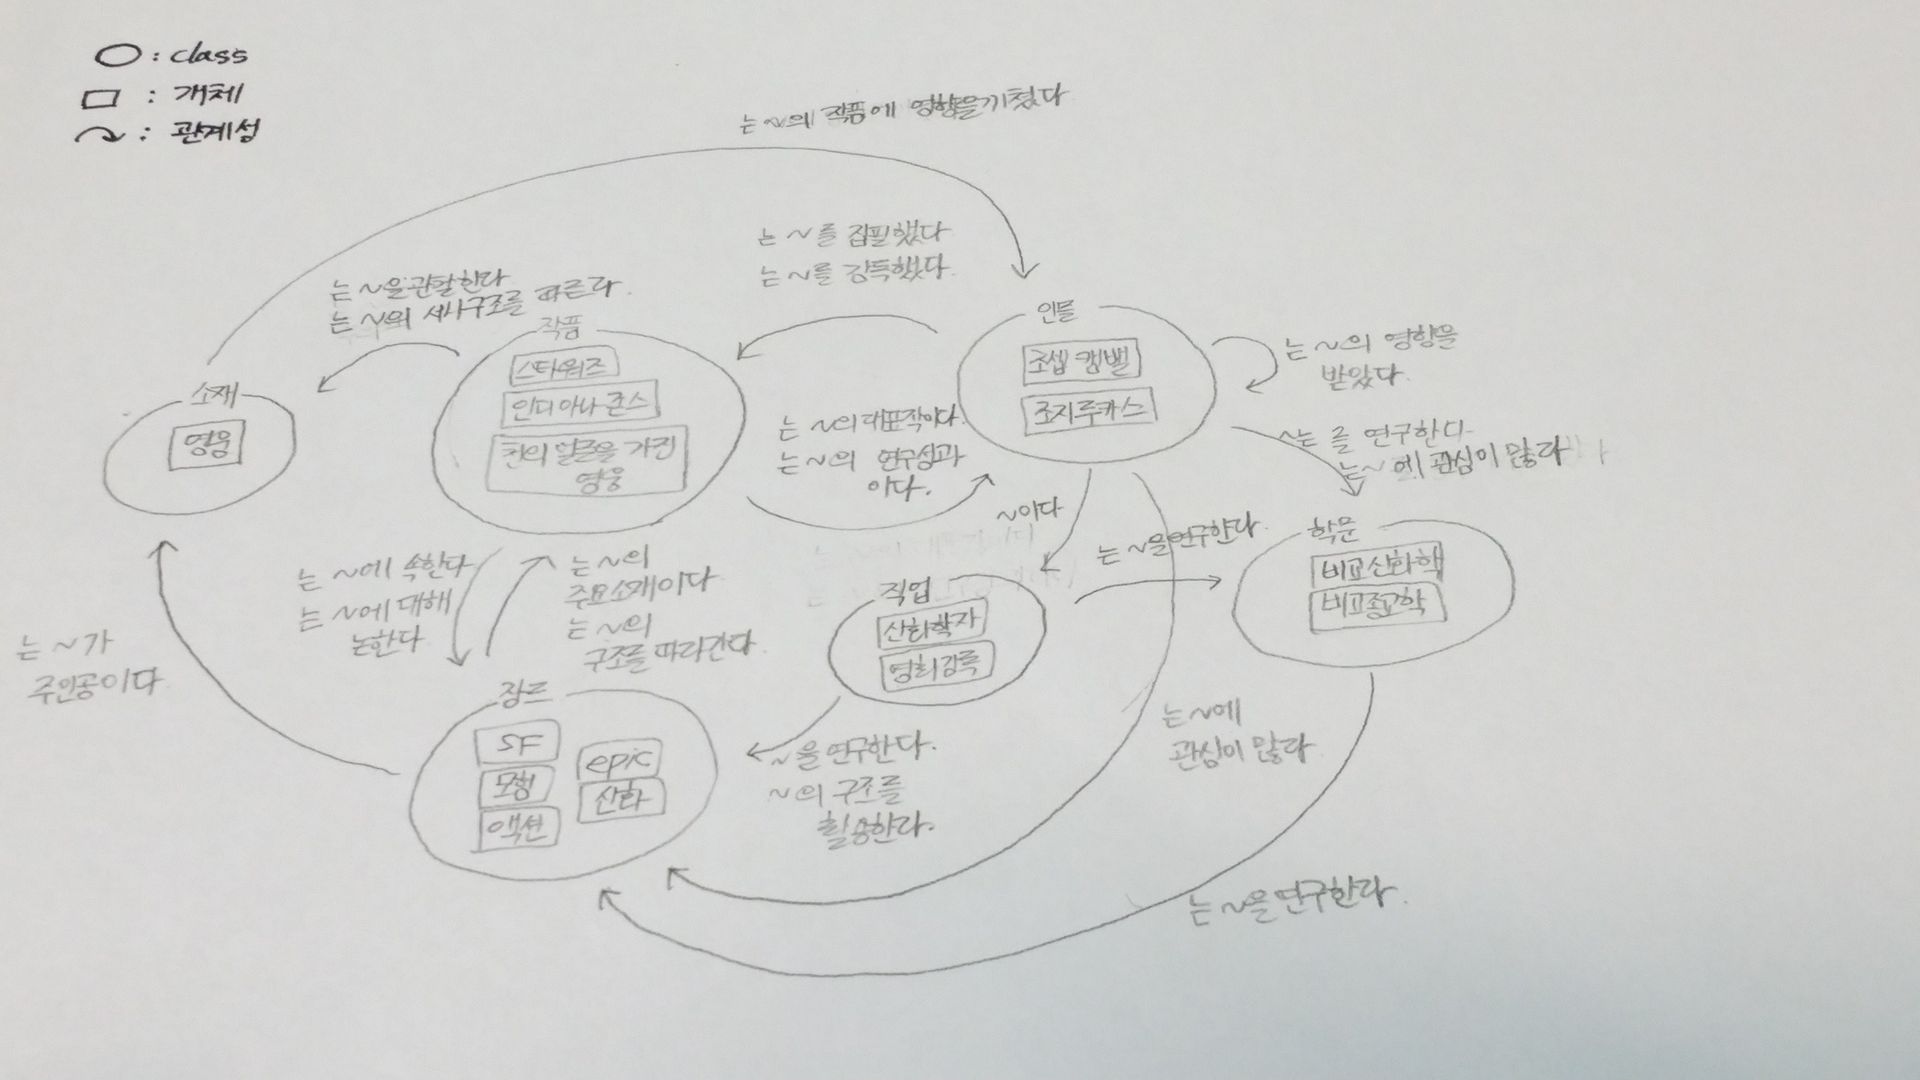 ○ : class
□ : 개체
↷ : 관계성
는 ~의 작품에 영향을 끼쳤다
는 ~를 집필했다
는 ~를 감독했다.
는 ~을 관찰한다
는 ~의 서사구조를 따른다.
작품
스타워즈
인디아나 존스
천의 얼굴을 가진
영웅
인물
조셉 캠밸
조지루카스
는 ~의 영향을
받았다.
소재
영웅
는 ~의 대표작이다
는 ~의 연구성과
이다.
~는 를 연구한다
는 ~에 관심이 많다
~이다
는 ~을 연구한다.
학문
비교신화학
비교종교학
는 ~에 속한다
는 ~에 대해
논한다
는 ~의
주요소재이다
는 ~의
구조를 따라간다.
직업
신화학자
영화감독
는 ~가
주인공이다
장르
SF
모험
액션
epic
신화
~을 연구한다.
~의 구조를
활용한다.
는 ~에
관심이 많다
는 ~을 연구한다.